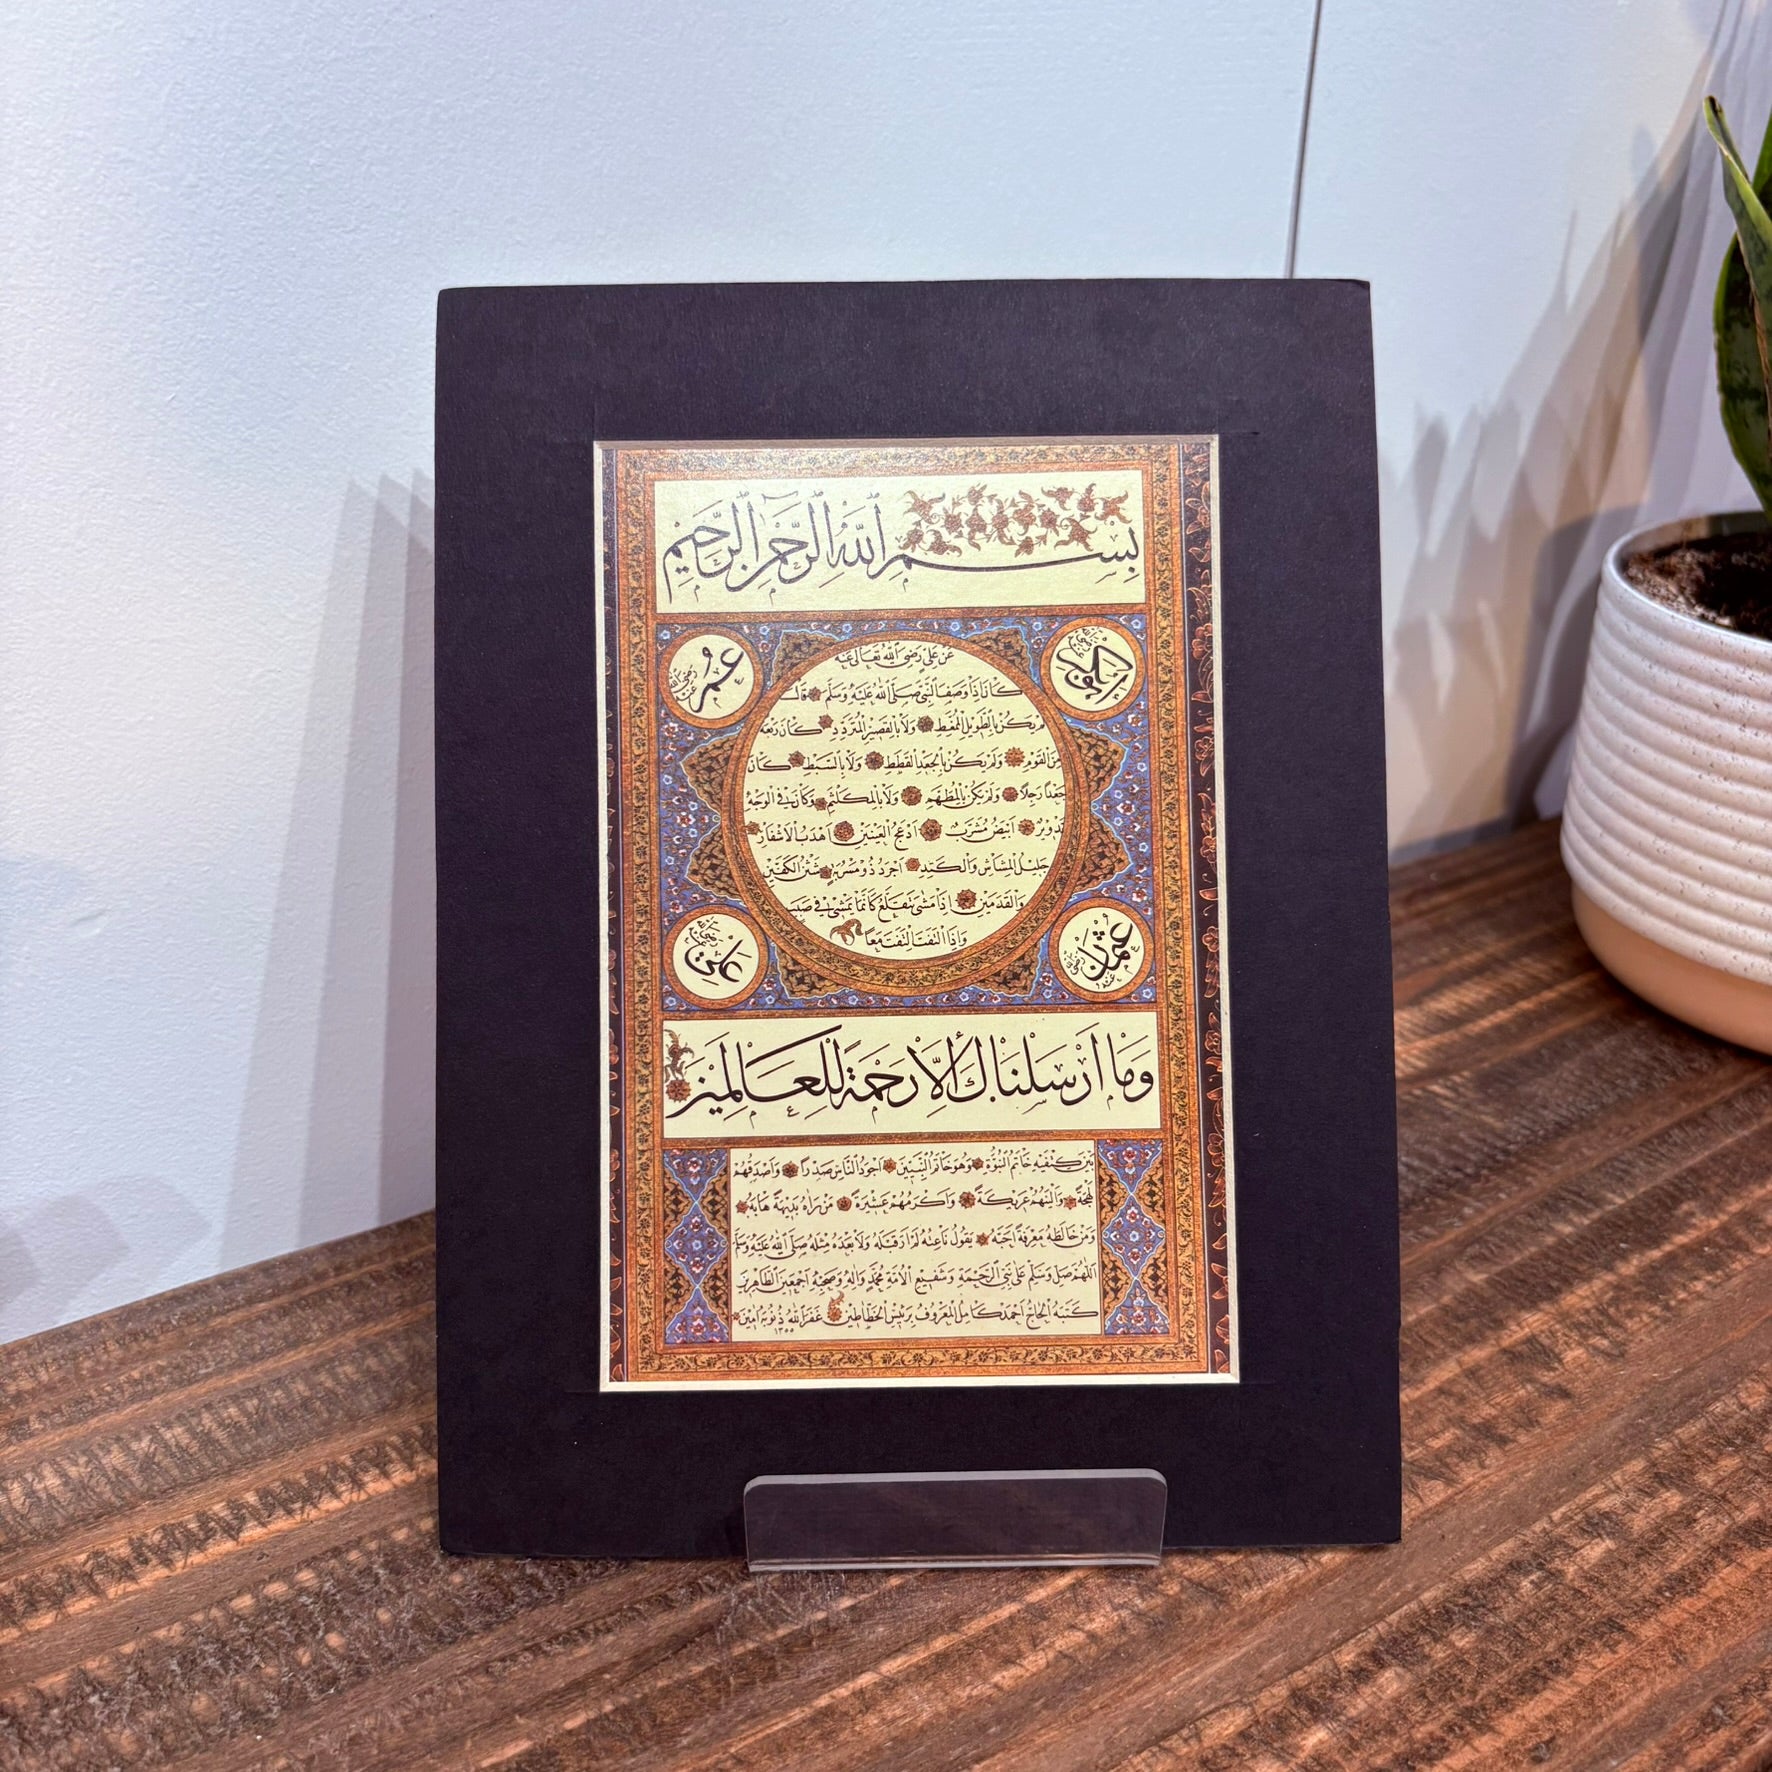 بِسْمِ اللّٰهِ الرَّحْمٰنِ الرَّحِيمِ
عُمَر رضي الله عنه
عَنْ عَلِيٍّ رَضِيَ اللّٰهُ تَعَالٰى عَنْهُ
كَانَ اِذَا وَصَفَ النَّبِيَّ صَلَّى اللّٰهُ عَلَيْهِ وَسَلَّمَ قَالَ
لَمْ يَكُنْ بِالطَّوِيلِ الْمُمَّغِطِ وَلَا بِالْقَصِيرِ الْمُتَرَدِّدِ كَانَ رَبْعَةً
مِنَ الْقَوْمِ وَلَمْ يَكُنْ بِالْجَعْدِ الْقَطَطِ وَلَا بِالسَّبْطِ كَانَ
جَعْدًا رَجِلًا وَلَمْ يَكُنْ بِالْمُطَهَّمِ وَلَا بِالْمُكَلْثَمِ وَكَانَ فِي الْوَجْهِ
تَدْوِيرٌ اَبْيَضُ مُشْرَبٌ اَدْعَجُ الْعَيْنَيْنِ اَهْدَبُ الْاَشْفَارِ
جَلِيلُ الْمُشَاشِ وَالْكَتَدِ اَجْرَدُ ذُو مَسْرُبَةٍ شَثْنُ الْكَفَّيْنِ
وَالْقَدَمَيْنِ اِذَا مَشٰى تَقَلَّعَ كَاَنَّمَا يَمْشِي فِي صَبَبٍ
وَاِذَا الْتَفَتَ الْتَفَتَ مَعًا
عُثْمَان رضي الله عنه
عَلِيّ رضي الله عنه
وَمَا اَرْسَلْنَاكَ اِلَّا رَحْمَةً لِلْعَالَمِينَ
بَيْنَ كَتِفَيْهِ خَاتَمُ النُّبُوَّةِ وَهُوَ خَاتَمُ النَّبِيِّينَ اَجْوَدُ النَّاسِ صَدْرًا وَاَصْدَقُهُمْ
لَهْجَةً وَاَلْيَنُهُمْ عَرِيكَةً وَاَكْرَمُهُمْ عَشِيرَةً مَنْ رَاٰهُ بَدِيهَةً هَابَهُ
وَمَنْ خَالَطَهُ مَعْرِفَةً اَحَبَّهُ يَقُولُ نَاعِتُهُ لَمْ اَرَ قَبْلَهُ وَلَا بَعْدَهُ مِثْلَهُ صَلَّى اللّٰهُ عَلَيْهِ وَسَلَّمَ
اَللّٰهُمَّ صَلِّ وَسَلِّمْ عَلٰى نَبِيِّ الرَّحْمَةِ وَشَفِيعِ الْاُمَّةِ مُحَمَّدٍ وَاٰلِهِ وَصَحْبِهِ اَجْمَعِينَ الطَّاهِرِينَ
كَتَبَهُ الْحَاجّ اَحْمَد كَامِل الْمَعْرُوفُ بِرَئِيسِ الْخَطَّاطِينَ غَفَرَ اللّٰهُ ذُنُوبَهُ اٰمِينَ
١٣٥٥